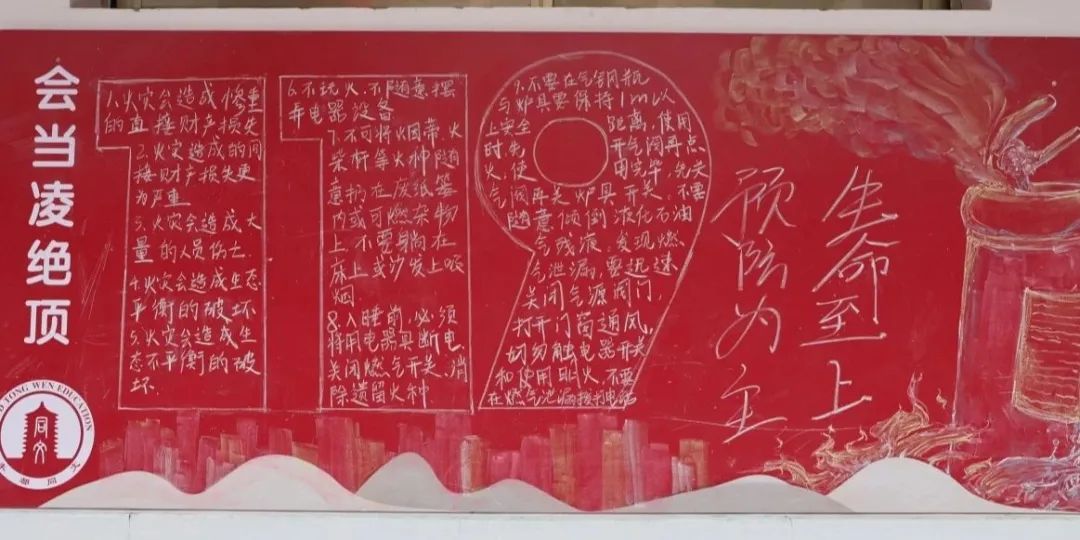 会当凌绝顶
1.火灾会造成惨重
的直接财产损失
2.火灾造成的间
接财产损失更
为严重
3.火灾会造成大
量的人员伤亡.
4.火灾会造成生态
平衡的破坏
5.火灾会造成生
态不平衡的破
坏.
6.不玩火.不随意摆
弄电器设备
7.不可将烟蒂,火
柴杆等火种随
意扔在废纸篓
内或可燃杂物
上,不要躺在
床上或沙发上吸
烟
8.入睡前,必须
将用电器具断电,
关闭燃气开关,消
除遗留火种
9.不要在气钢瓶
与炉具要保持1m以
上安全距离,使用
时先开气阀再点
火,使用完毕,先关
气阀再关炉具开关,不要
随意倾倒液化石油
气残液,发现燃
气泄漏,要迅速
关闭气源阀门,
打开门窗通风,
切勿触电器开关
和使用明火,不要
在燃气泄漏拨打电话
生命至上
预防为主
TONG WEN EDUCATION
同文